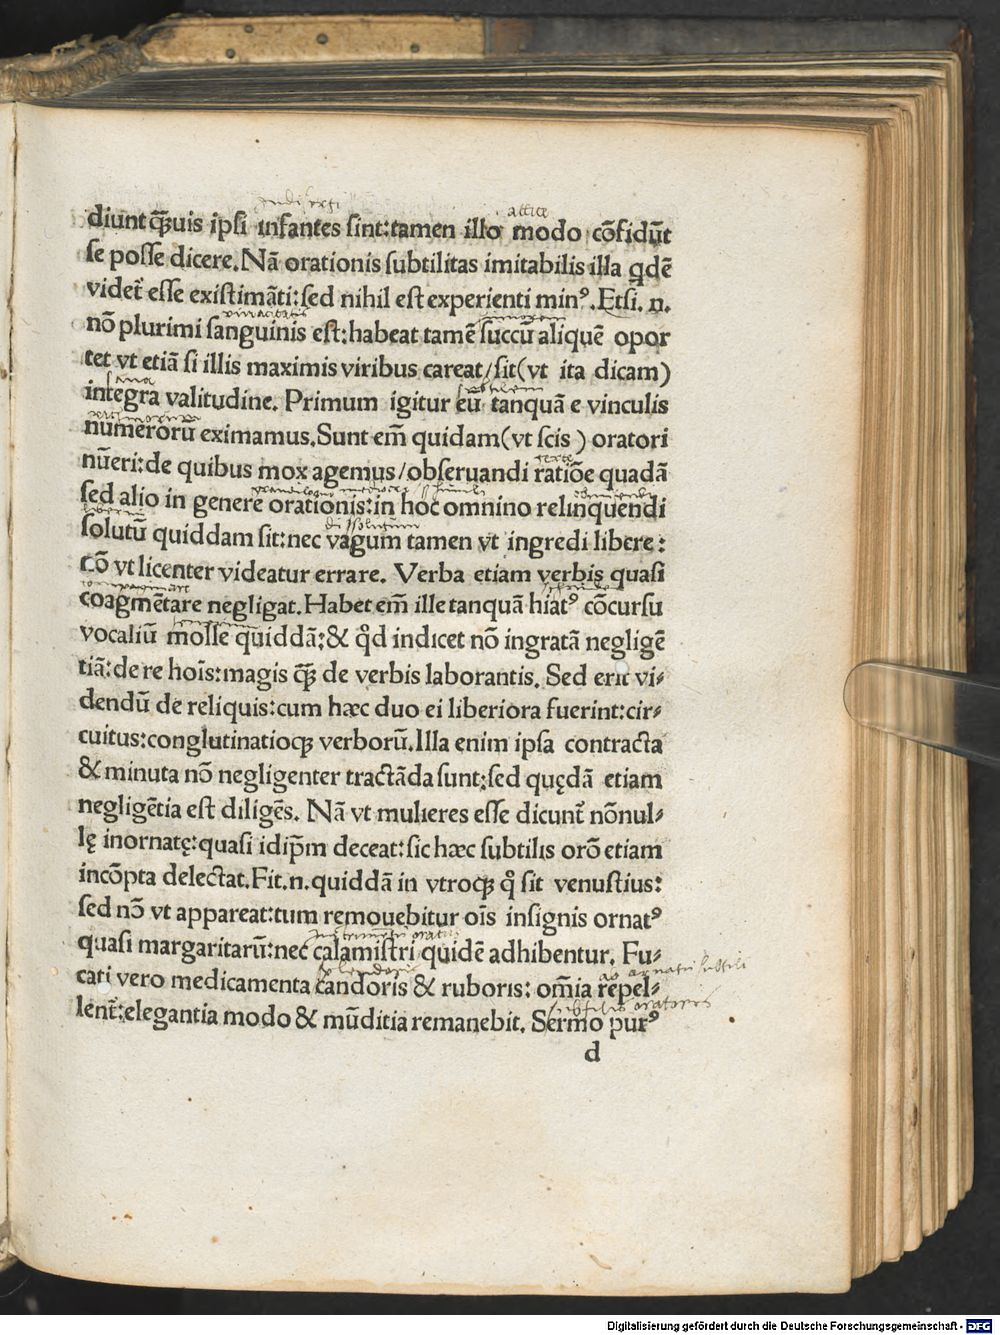 attice
diunt q̃uis ipsi infantes sint:tamen illo modo cõfidũt
se posse dicere.Nã orationis subtilitas imitabilis illa qdẽ
videt̃ esse existimãti:sed nihil est experienti min⁹.Etsi.n.
nõ plurimi sanguinis est:habeat tamẽ succũ aliquẽ opor
tet vt etiã si illis maximis viribus careat/sit(vt ita dicam)
integra valitudine. Primum igitur eũ tanquã e vinculis
numerorũ eximamus.Sunt em̃ quidam(vt scis) oratori
nũeri:de quibus mox agemus/obseruandi ratiõe quadã
sed alio in genere orationis:in hoc omnino relinquendi
solutũ quiddam sit:nec vagum tamen vt ingredi libere:
nõ vt licenter videatur errare. Verba etiam verbis quasi
coagmẽtare negligat.Habet em̃ ille tanquã hiat⁹ cõcursu
vocaliũ molle quiddã:& qd̛ indicet nõ ingratã negligẽ
tiã:de re hoĩs:magis q̃ de verbis laborantis. Sed erit vi⸗
dendũ de reliquis:cum hæc duo ei liberiora fuerint:cir⸗
cuitus:conglutinatioqꝫ verborũ.Illa enim ipsa contracta
& minuta nõ negligenter tractãda sunt:sed quędã etiam
negligẽtia est diligẽs. Nã vt mulieres esse dicunt̃ nõnul⸗
lę inornatę:quasi idip̃m deceat:sic hæc subtilis orõ etiam
incõpta delectat.Fit.n.quiddã in vtroqꝫ q̊ sit venustius:
sed nõ vt appareat:tum remouebitur oĩs insignis ornat⁹
quasi margaritarũ:nec calamistri quidẽ adhibentur. Fu⸗
splendoris
cati vero medicamenta candoris & ruboris: om̃ia repel⸗
subtilis oratoris
lent̃:elegantia modo & mũditia remanebit. Sermo pur⁹
d
Digitalisierung gefördert durch die Deutsche Forschungsgemeinschaft - DFG